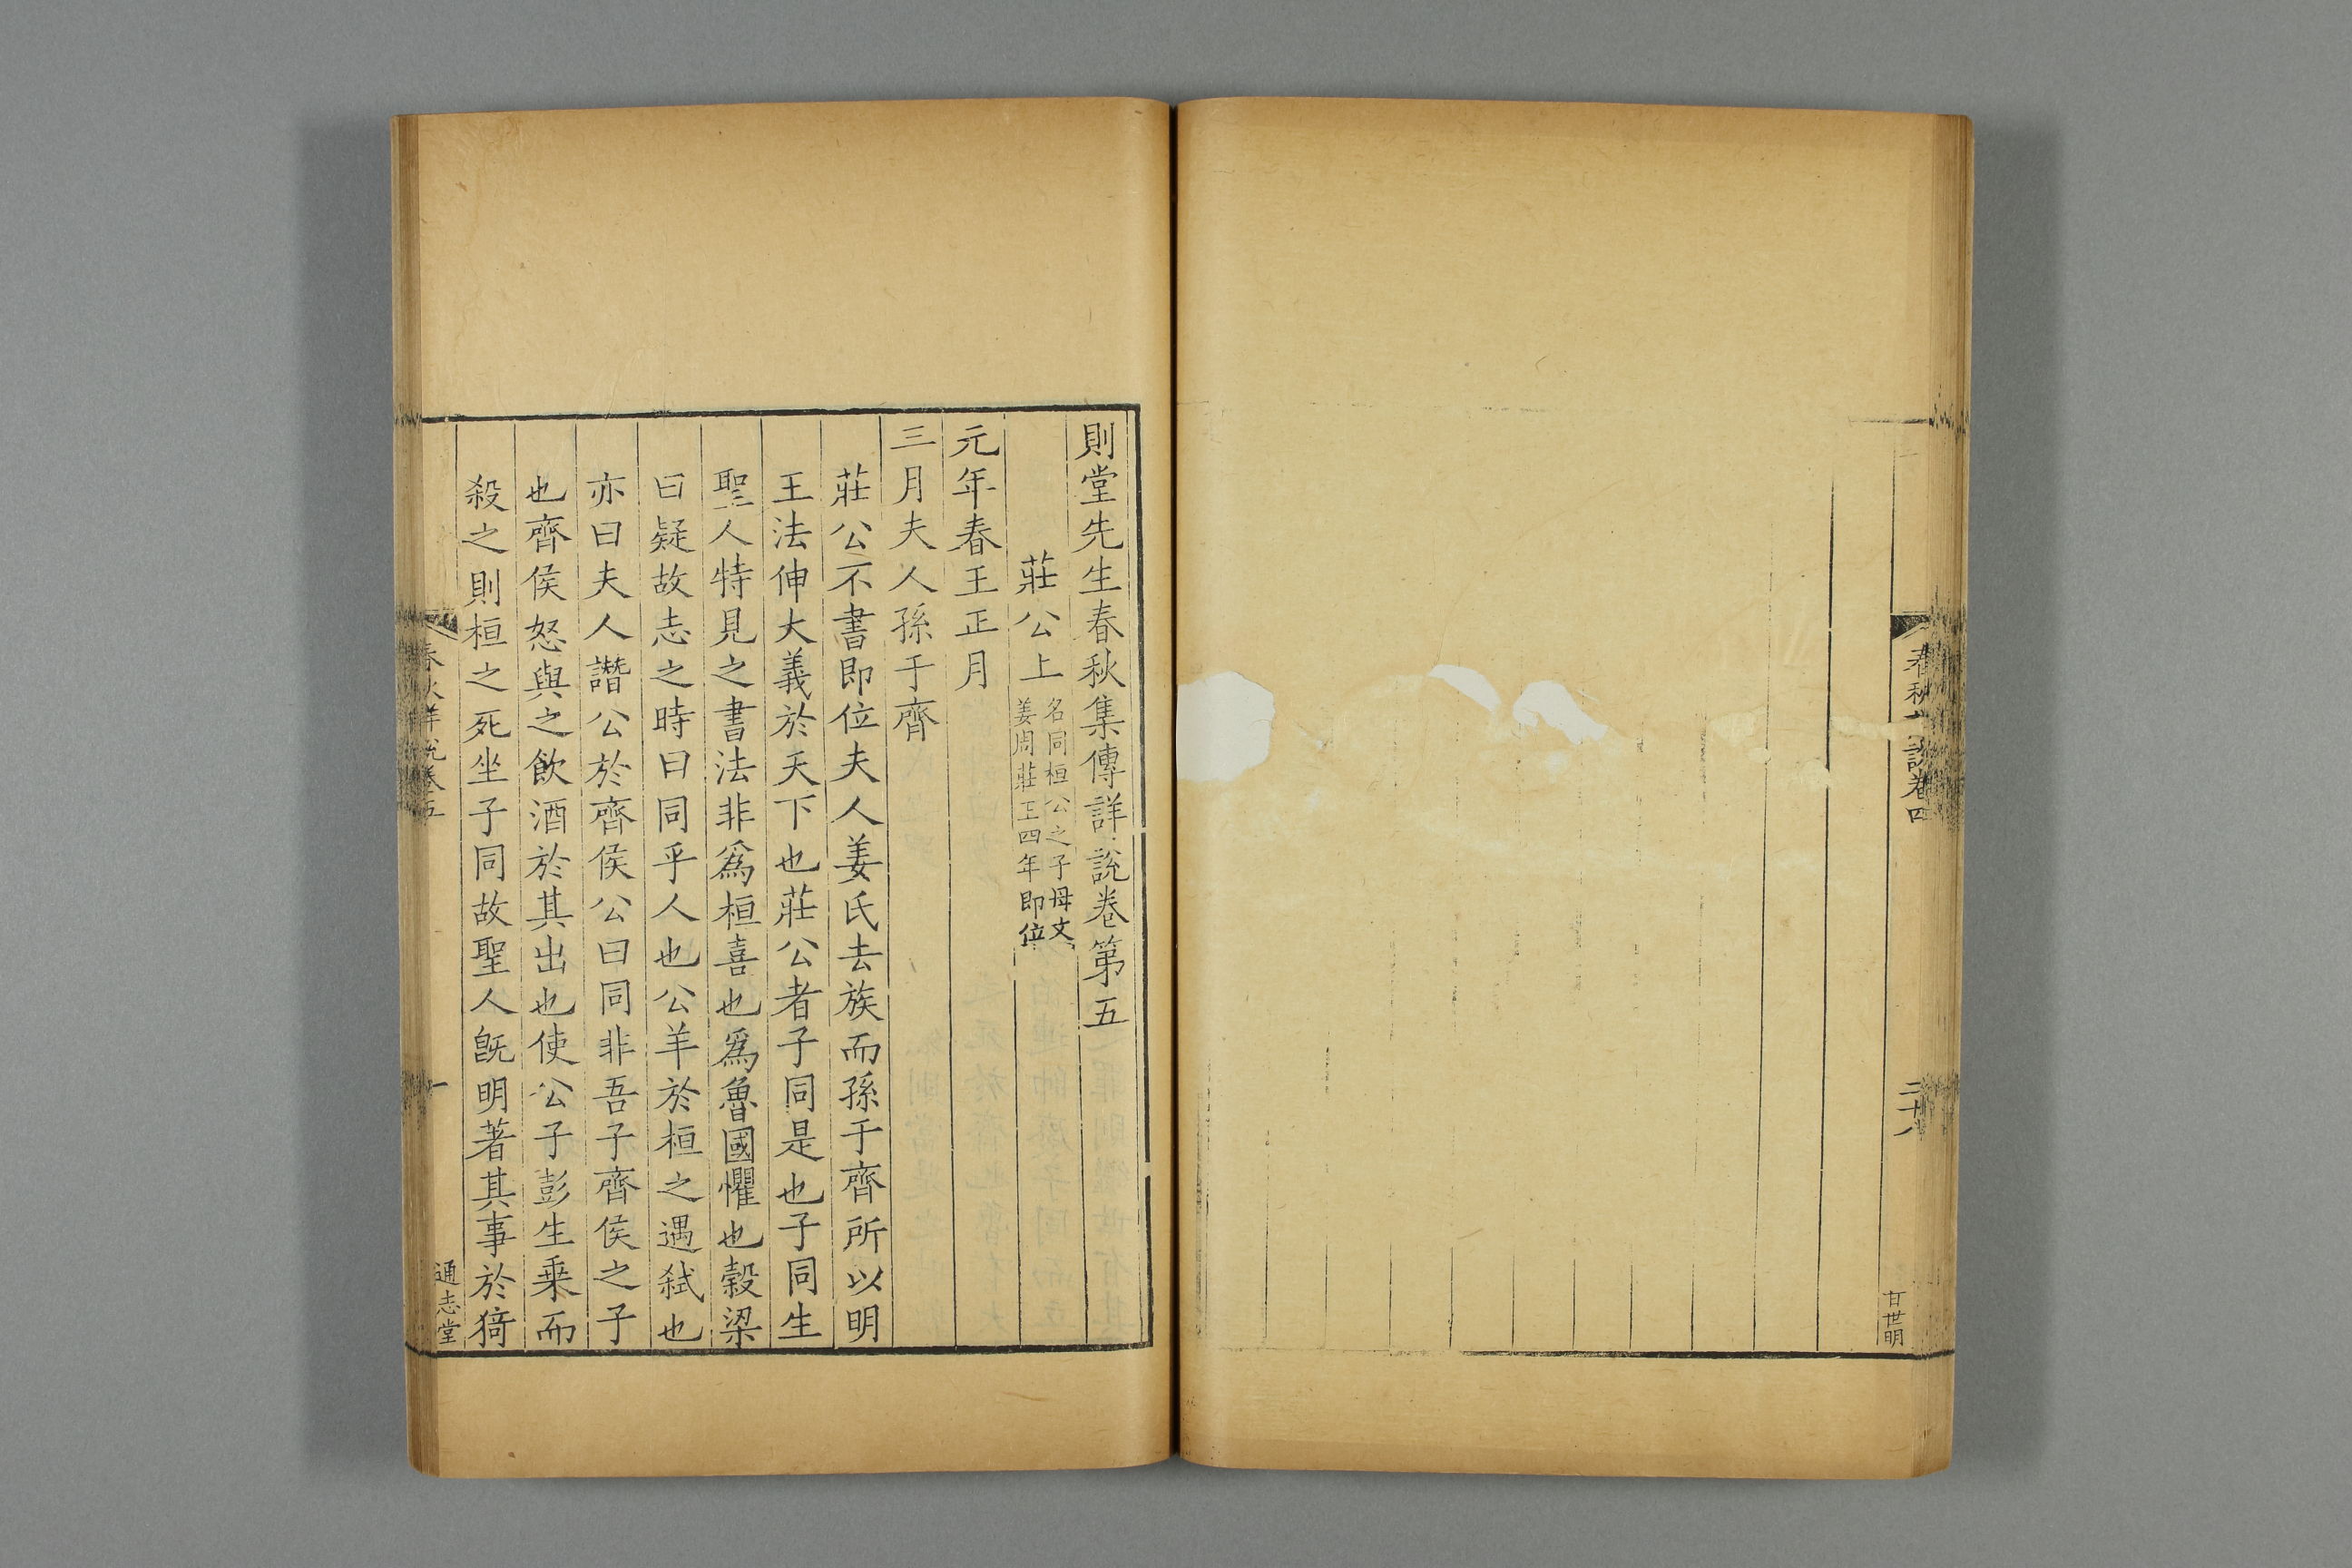 春秋詳說卷四
二十八
甘世明
則堂先生春秋集傳詳說卷第五
莊公上
名同桓公之子母文
姜周莊王四年即位
元年春王正月
三月夫人孫于齊
莊公不書即位夫人姜氏去族而孫于齊所以明
王法伸大義於天下也莊公者子同是也子同生
聖人特見之書法非爲桓喜也爲魯國懼也穀梁
曰疑故志之時曰同乎人也公羊於桓之遇弒也
亦曰夫人譖公於齊侯公曰同非吾子齊侯之子
也齊侯怒與之飮酒於其出也使公子彭生乗而
殺之則桓之死坐子同故聖人旣明著其事於猗
春秋詳說卷五
一
通志堂